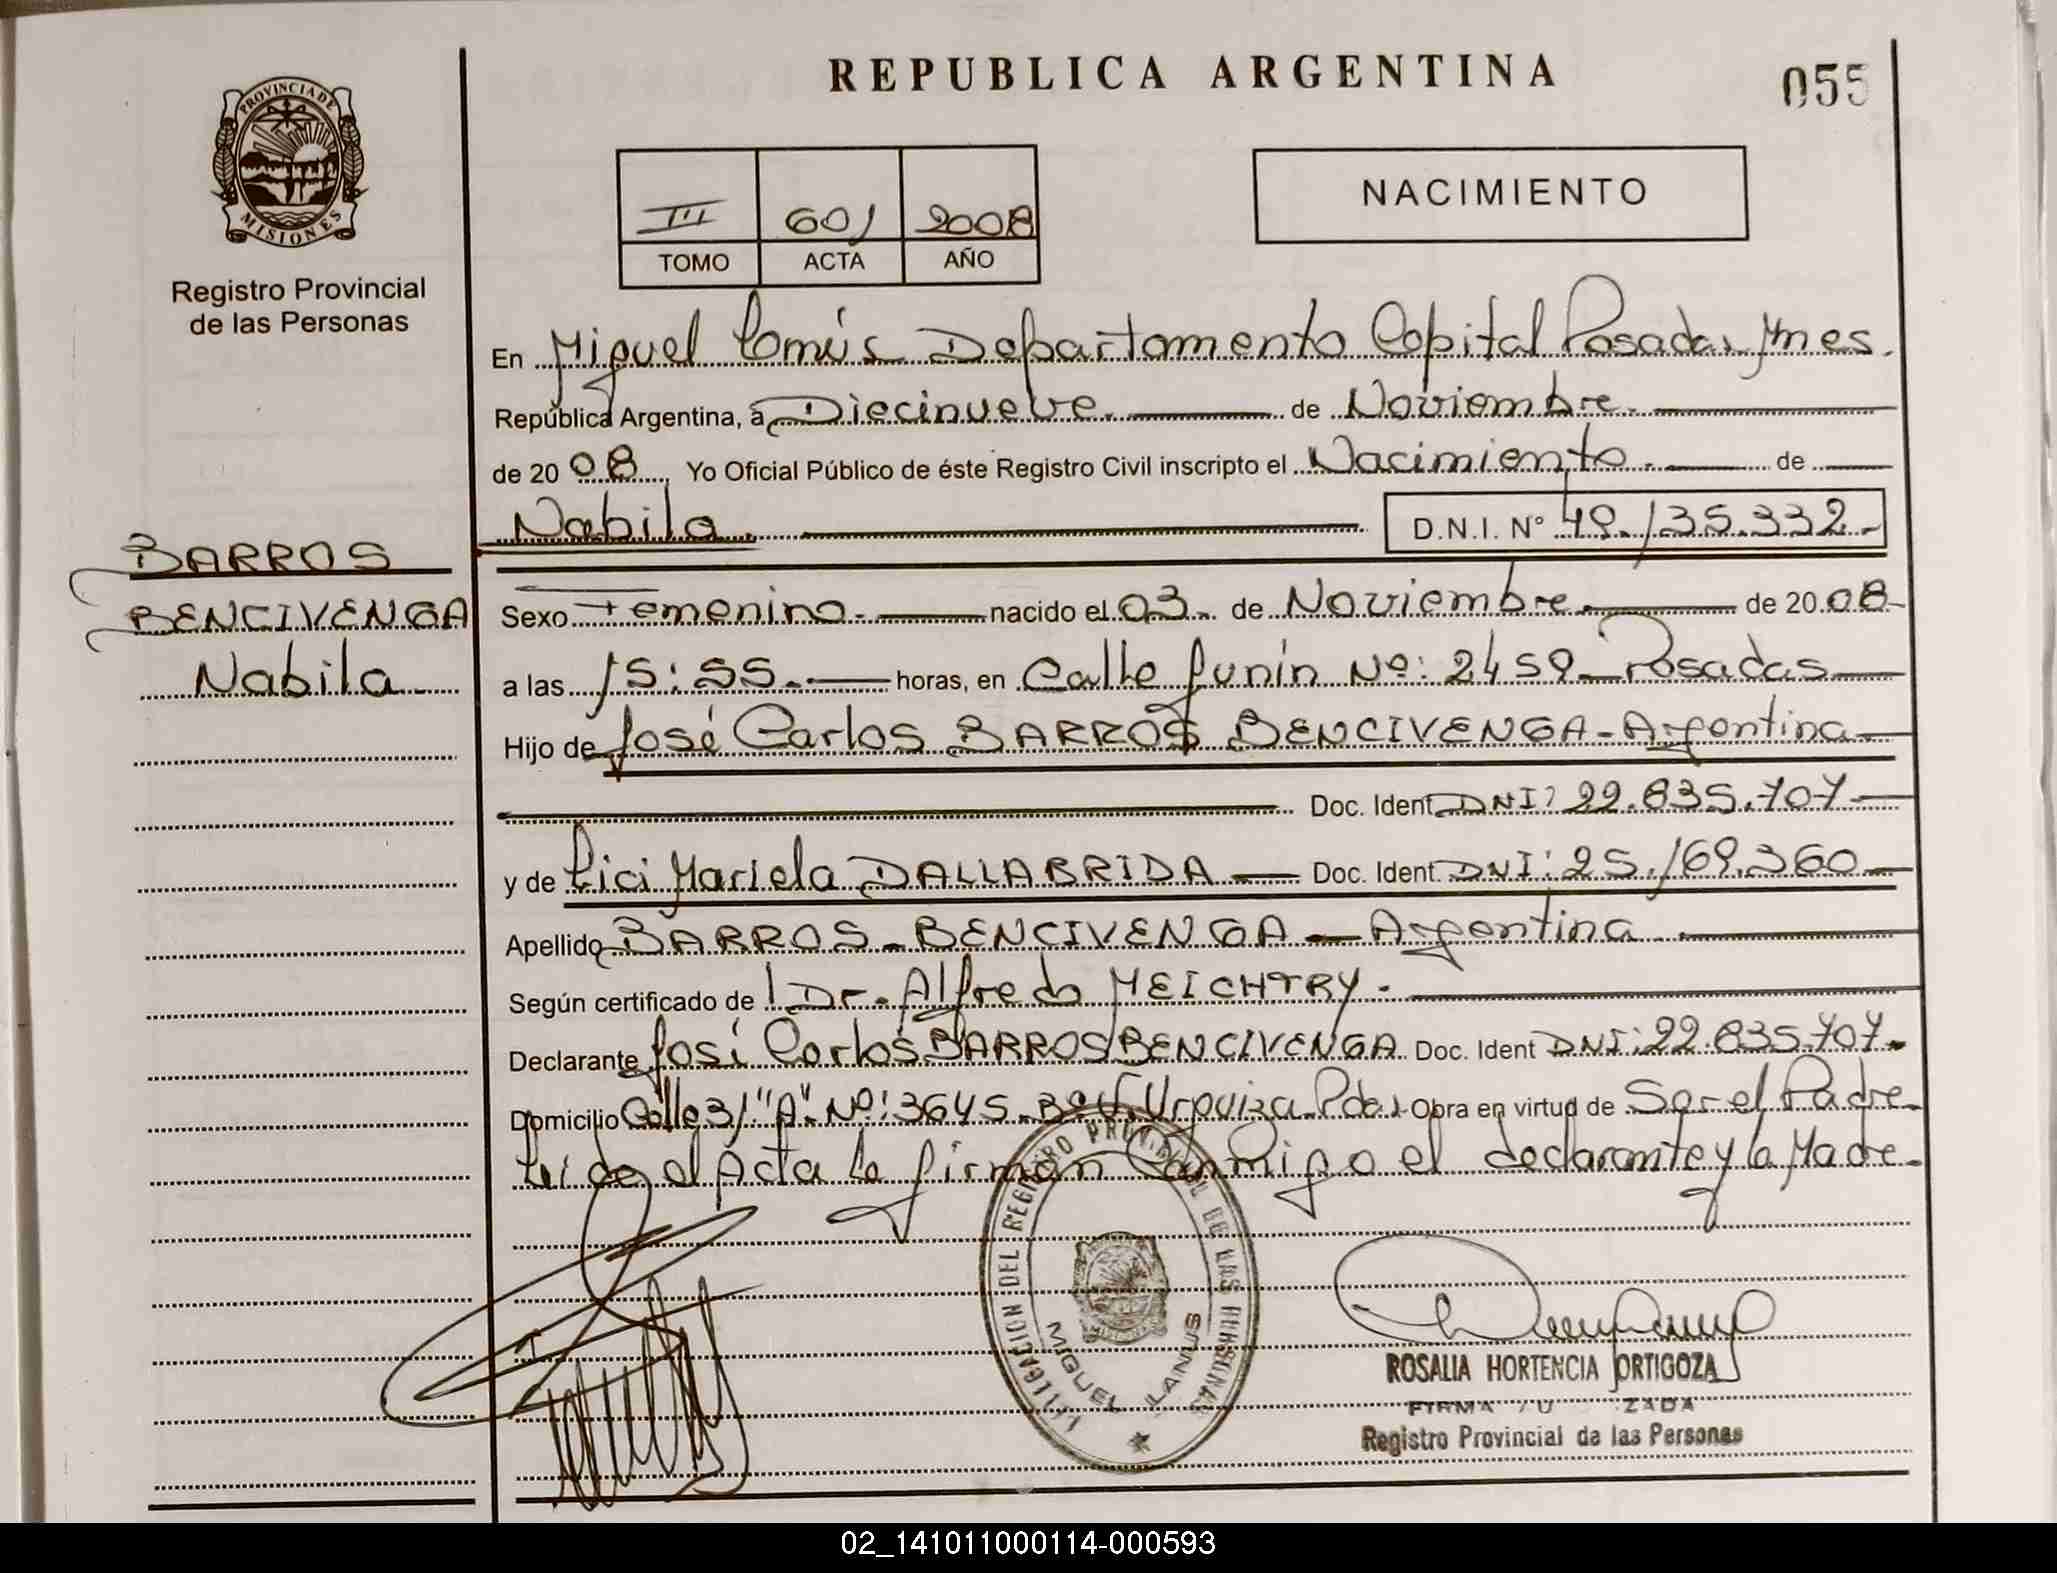 REPUBLICA ARGENTINA
055
PROVINCIA DE
MISIONES
Registro Provincial
de las Personas
III 601 2008
TOMO ACTA AÑO
NACIMIENTO
En Miguel Lanús Departamento Capital Posadas Mnes.
República Argentina, a Diecinueve. de Noviembre.
de 20 08 Yo Oficial Público de éste Registro Civil inscripto el Nacimiento. de
Nabila. D.N.I. N° 49.135.332.-
BARROS
BENCIVENGA
Nabila
Sexo Femenino. nacido el 03. de Noviembre. de 20 08
a las 15:55. horas, en Calle Junín Nº: 2459 Posadas
Hijo de José Carlos BARROS BENCIVENGA - Argentina
Doc. Ident DNI: 22.835.707
y de Lici Mariela DALLABRIDA Doc. Ident. DNI: 25.169.360
Apellido BARROS BENCIVENGA Argentina
Según certificado de Dr. Alfredo MEICHTRY.
Declarante José Carlos BARROS BENCIVENGA Doc. Ident DNI: 22.835.707.
Domicilio Calle 31 "A" Nº: 3645 Urquiza Pdas Obra en virtud de Ser el Padre
Leída el Acta la firman Conmigo el declarante y la Madre.
DEL REGISTRO PROVINCIAL DE LAS PERSONAS
MIGUEL LANUS
ROSALIA HORTENCIA ORTIGOZA
FIRMA AU ZADA
Registro Provincial de las Personas
02_141011000114-000593